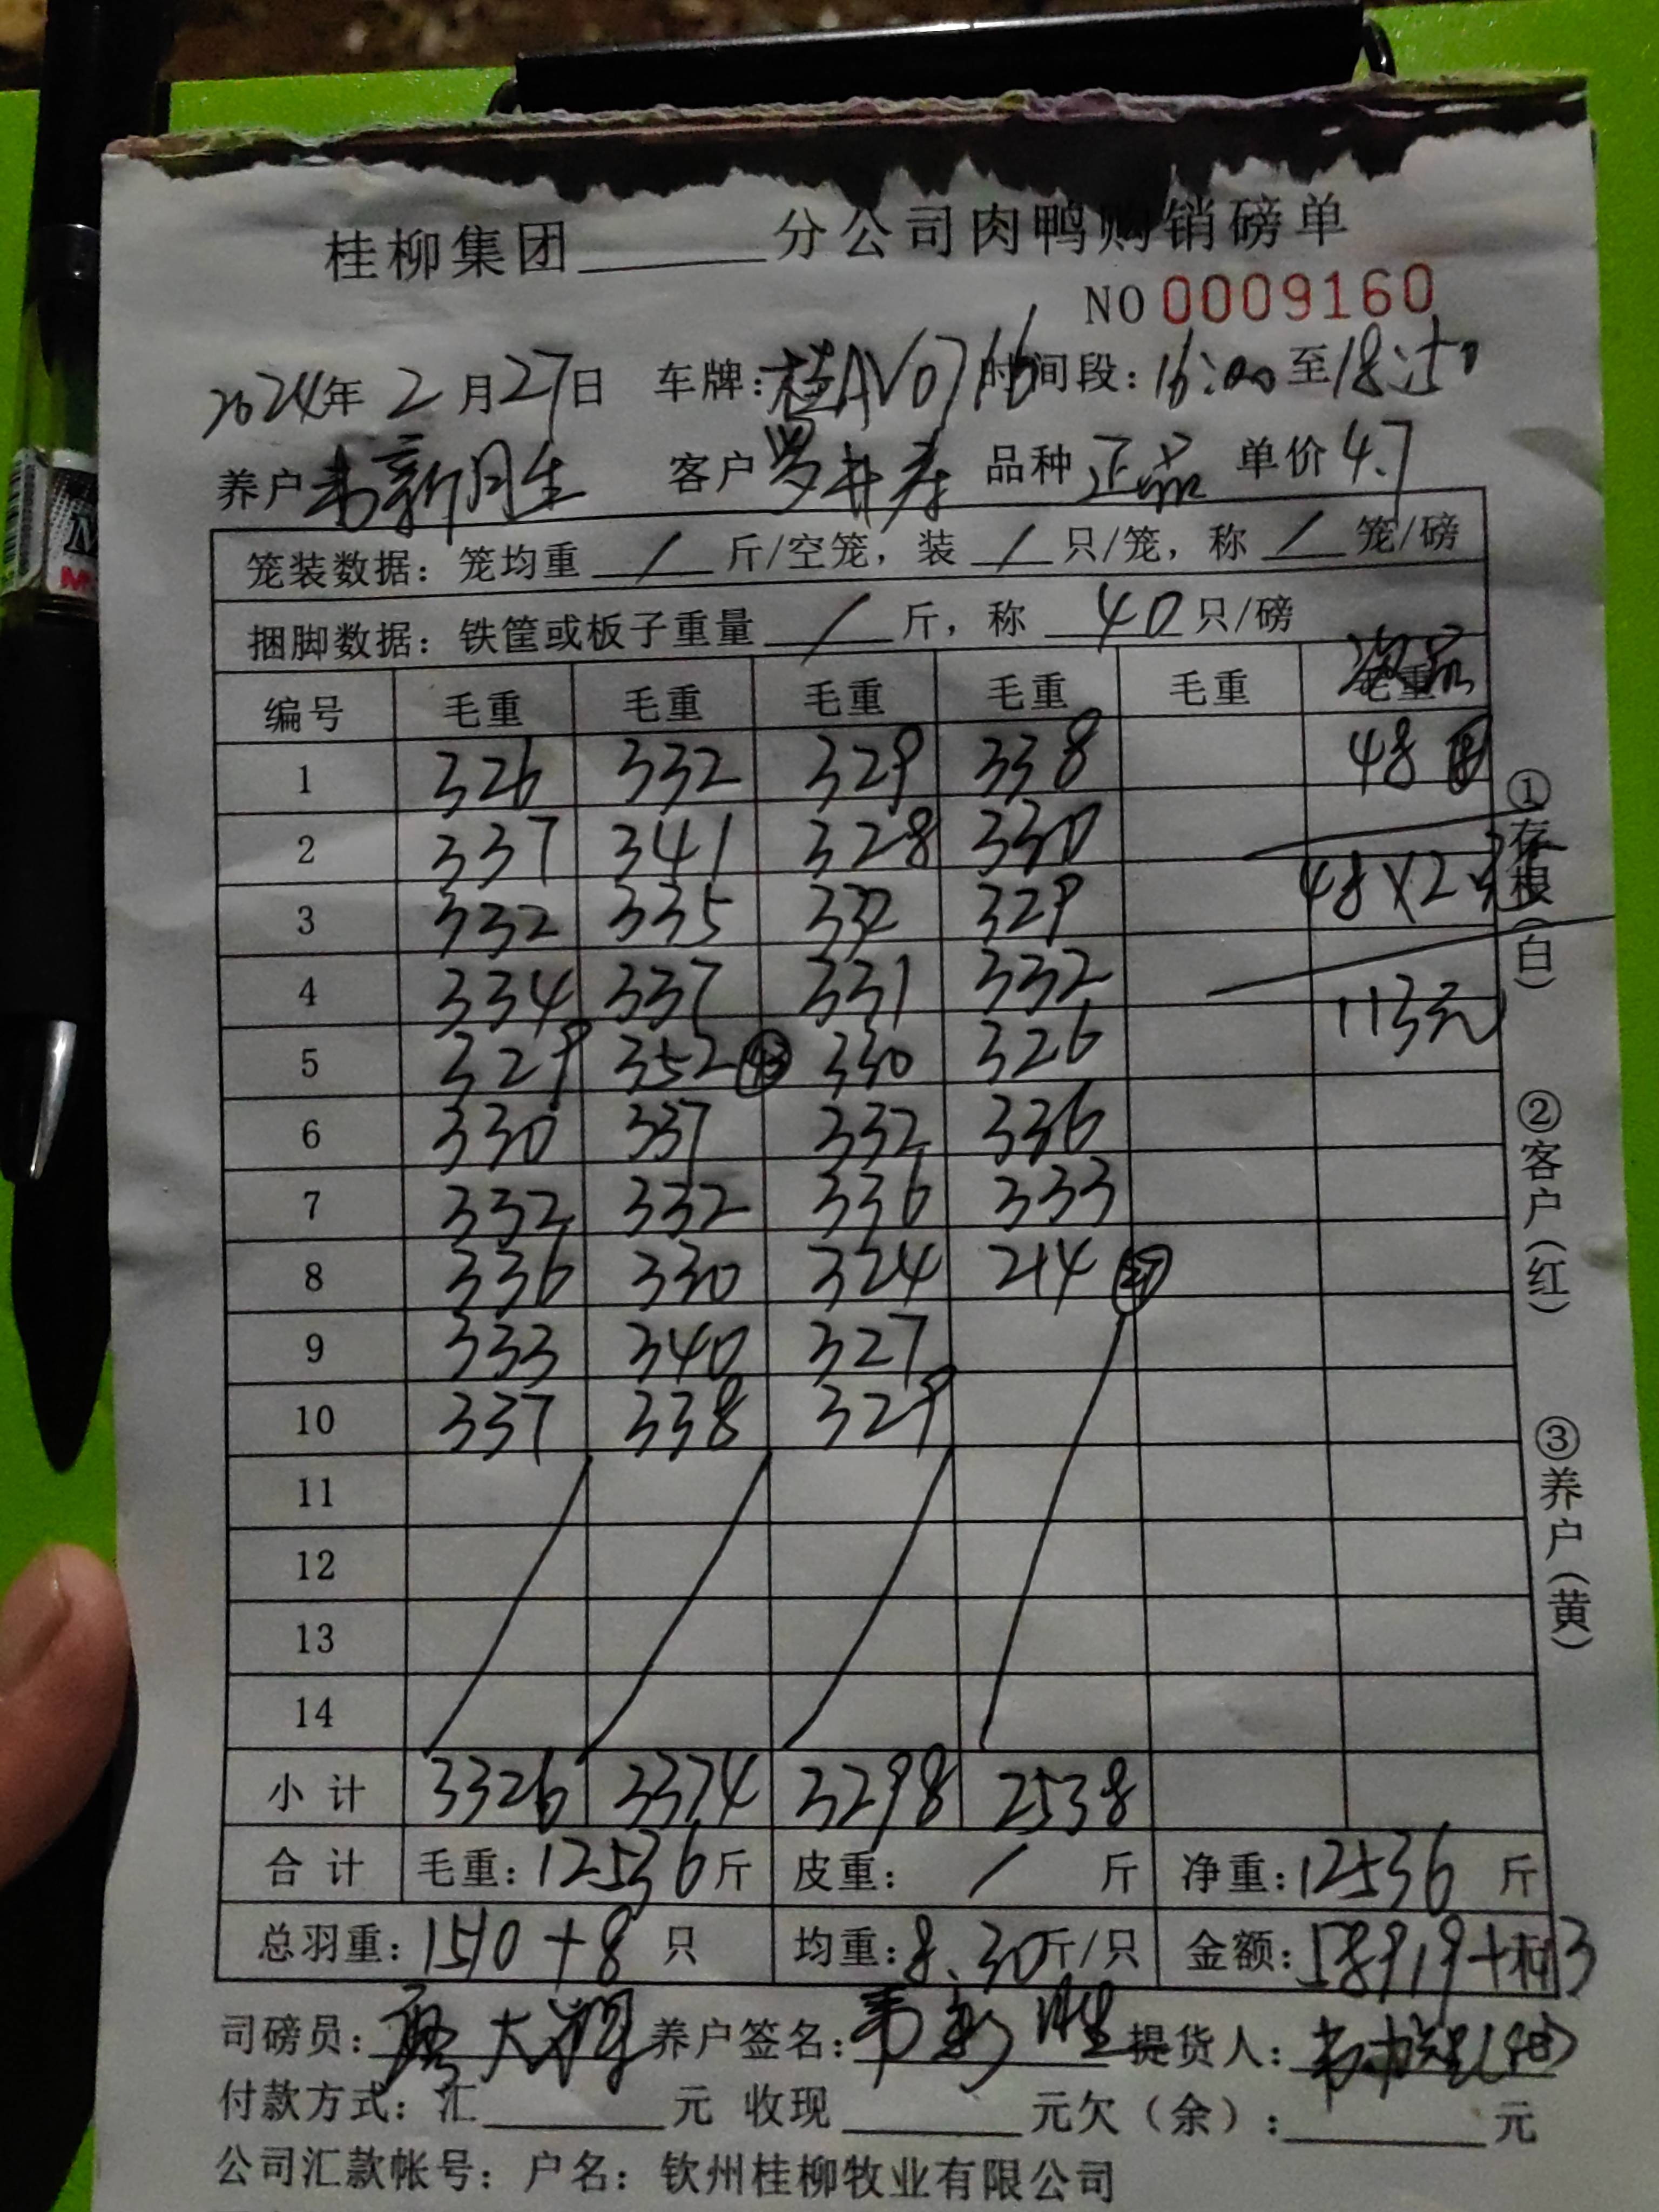 桂柳集团______分公司肉鸭购销磅单
NO 0009160
2024年 2月27日 车牌:桂AV0716 时间段:16:00至18:50
养户韦新胜 客户罗 寿 品种 正品 单价4.7
笼装数据:笼均重 / 斤/空笼,装 / 只/笼,称 / 笼/磅
捆脚数据:铁筐或板子重量 / 斤,称 40 只/磅
编号 毛重 毛重 毛重 毛重 毛重 毛重
1 326 332 329 338 48
2 337 341 328 330
3 332 335 332 329 48×2
4 334 337 331 332
5 329 352 43 330 326 113元
6 330 337 332 336
7 332 332 336 333
8 336 330 324 214
9 333 340 327
10 337 338 329
11
12
13
14
小计 3326 3374 3298 2538
合计 毛重:12536斤 皮重: / 斤 净重:12536 斤
总羽重:1510+8 只 均重:8.30斤/只 金额:58919+113
司磅员: 大 养户签名:韦新胜 提货人:
付款方式:汇______元 收现______元欠(余):______元
公司汇款帐号:户名:钦州桂柳牧业有限公司
①存根(白)
②客户(红)
③养户(黄)